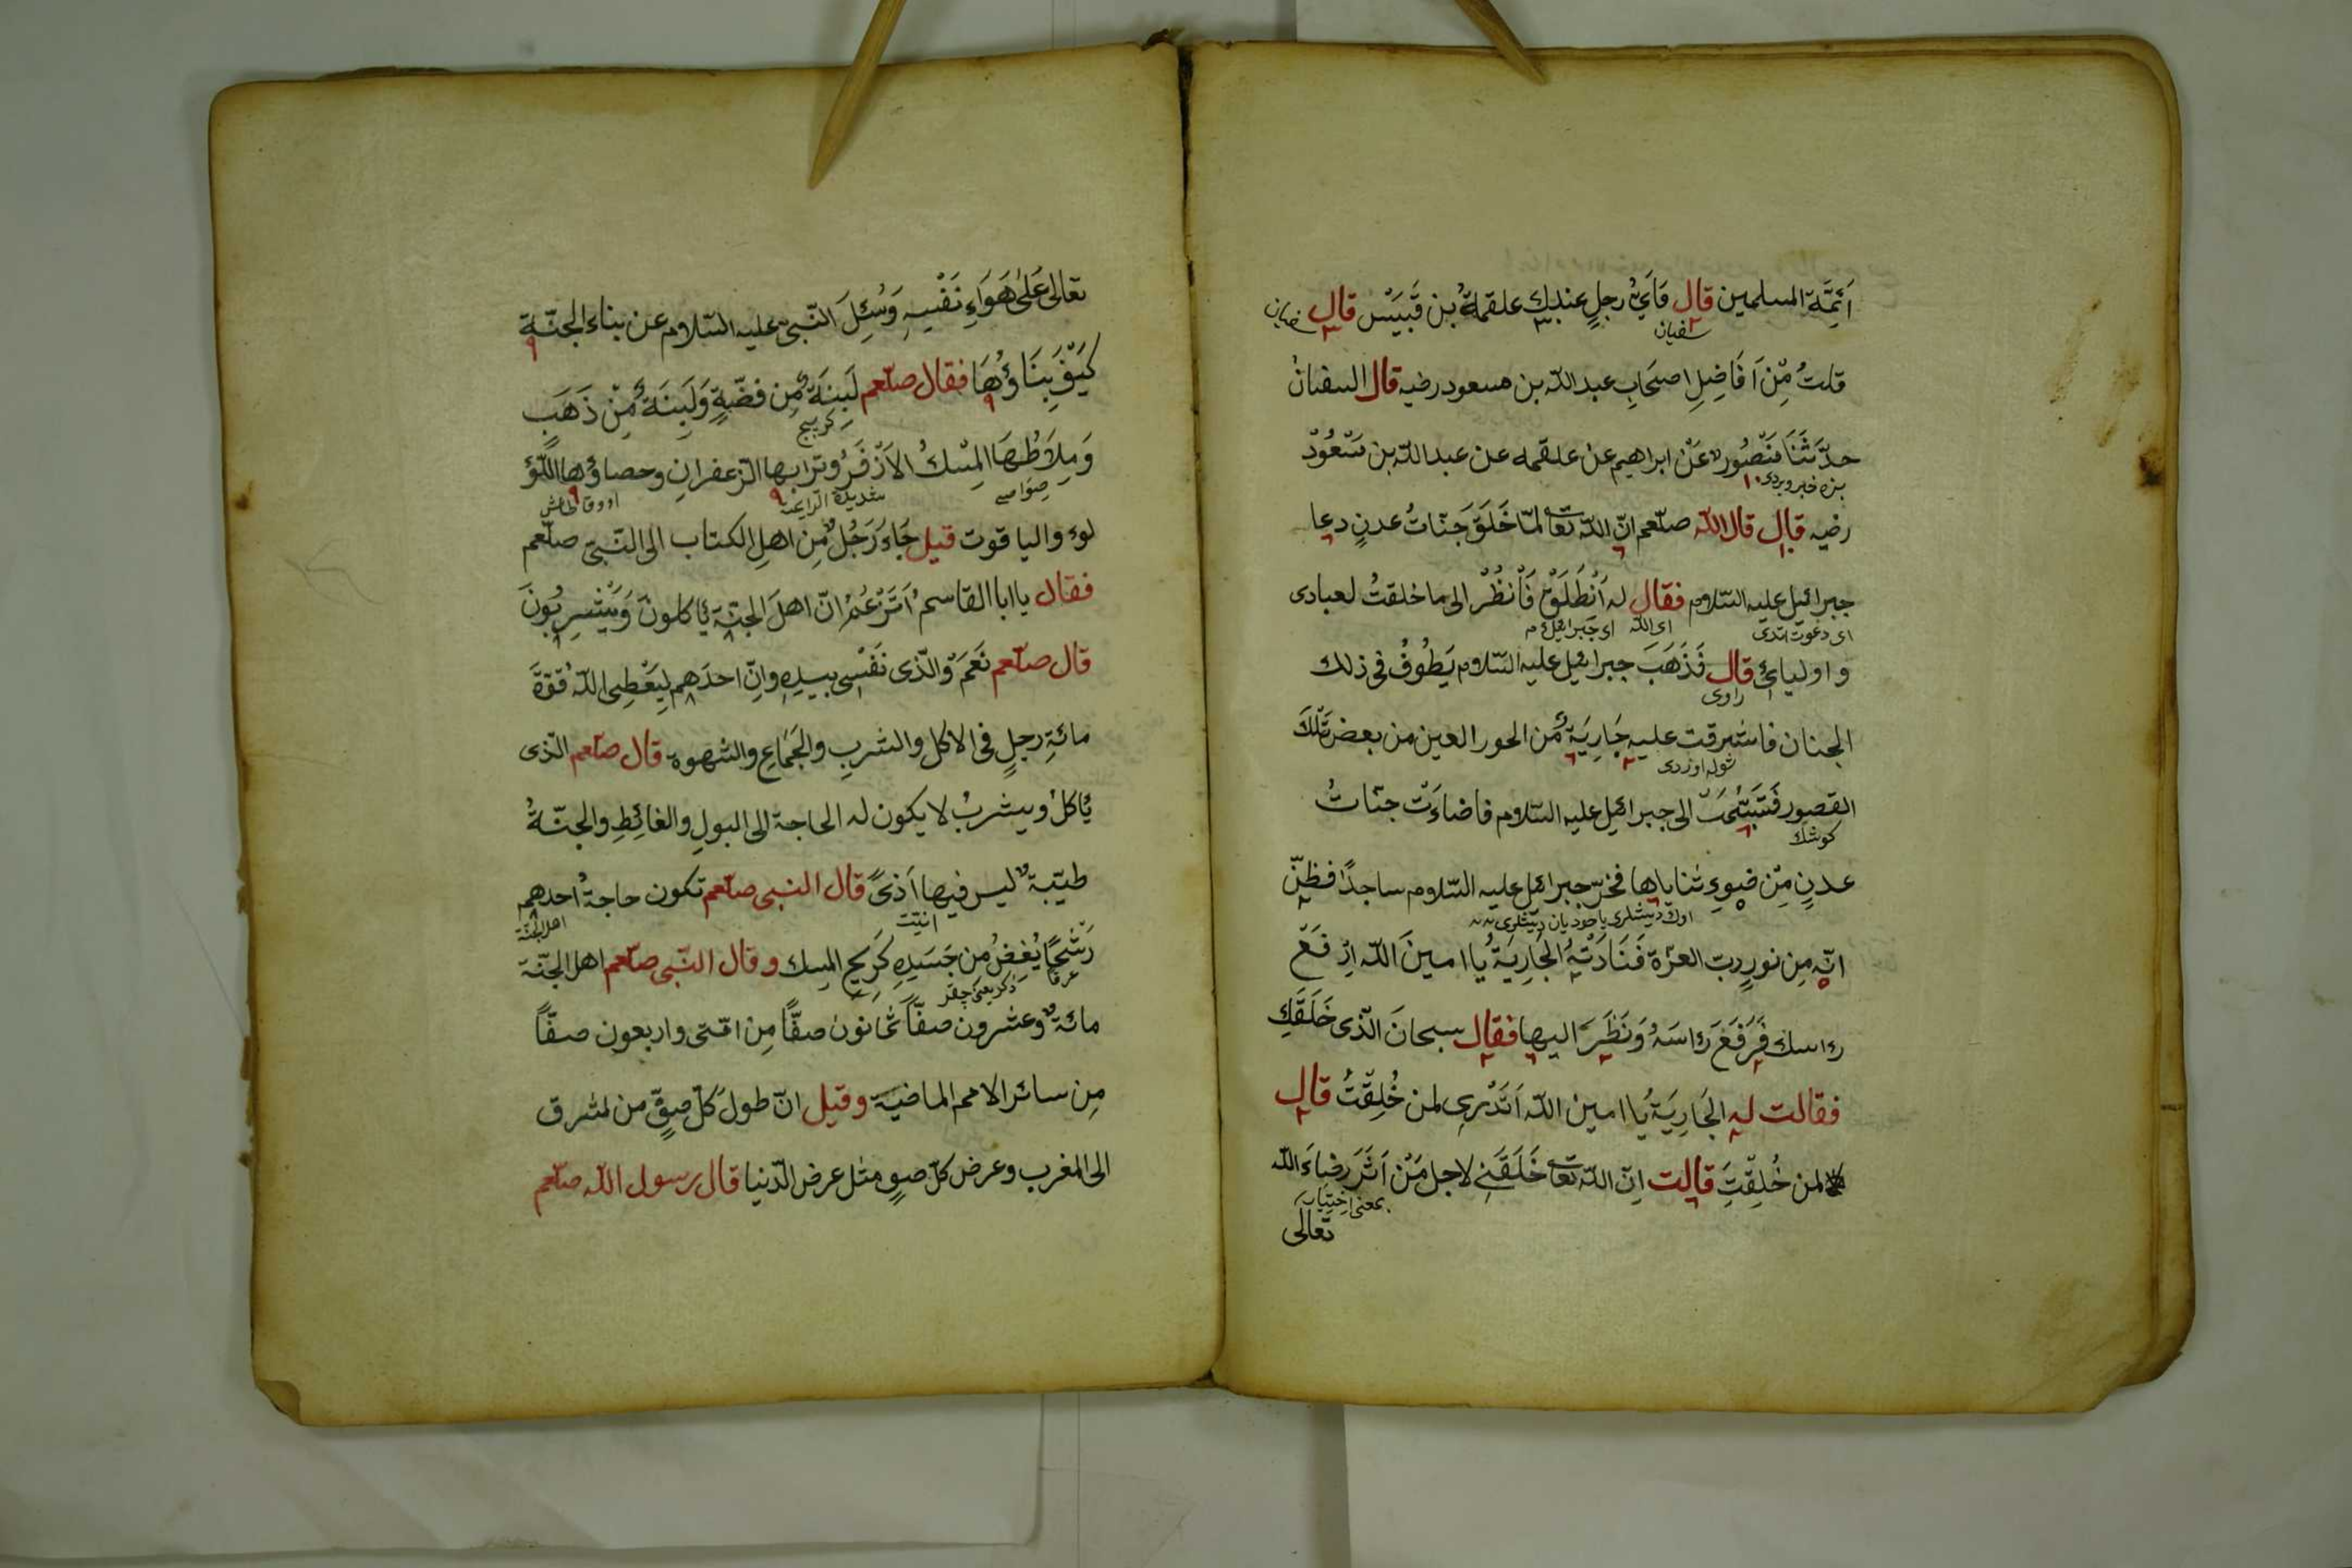 اَئِمَّة المسلمين قال فَاَيُّ رجلٍ عندك علقمةُ بن قَبَيْس قال
سفيان
سفيان
قلتُ مِّنْ اَفَاضِلِ اصحَابِ عبد اللّه بن مسعود رضيه قال السفيانُ
حدّثَنَا مَنْصُورٌ عَنْ ابراهيم عن علقمه عن عبد اللّه بن مَسْعُودْ
بزه خبر ويردى
رضيه قال قال اللّه صلّعم انّ اللّه تعا لمّا خَلَقَ جَنّاتُ عدنٍ دعا
جبرائيل عليه السّلاوم فقال له اَنْطَلَقْ فَاْنظُرْ الى ما خلقتُ لعبادى
اى دعوت اتدى
اى اللّه
اى جبرائيل م
و اوليائ قال فَذَهَبَ جبرائيل عليه السّلاوم يَطُوفُ فى ذلك
راوى
الجنان فاشرقت عليه جَارِيَةٌ مِّن الحور العين من بعض تلْكَ
شوله اوزردى
القصور فَتَبَسَّمَتْ الى جبرائيل عليه السّلاوم فاضاءَتْ جنّاتُ
كوشك
عدنٍ مِّنْ ضوءِ ثناياها فخرّ جبرائيل عليه السّلاوم ساجدًا فظنّ
اوك ديشلرى ياخود يان ديشلرى
انّه مِن نورِ ربّ العزّة فَنَادَتْهُ الجَارِيَةُ يا امينَ اللّه اِرْفَعْ
رءاسك فَرَفَعَ رءاسَهُ وَنَظَرَ اليها فقال سبحانَ الّذى خَلَقَكِ
فقالت له الجَارِيَةُ يا امين اللّه اَتَدْرِى لمن خُلِقْتُ قال
لا لمن خُلِقْتِ قالت اِنّ اللّه تعا خَلَقَنِى لاجل مَنْ اَثَرَ رضاءَ اللّه
بمعنى اختيار
تعالى
تعالى عَلىٰ هَوَاءِ نَفْسِهِ وَسُئِلَ النّبىّ عليه السّلاوم عن بناء الجنّة
كَيْفَ بِنَاؤُهَا فقال صلّعم لَبِنَةٌ مِّن فضّةٍ وَلَبِنَةٌ مِّنْ ذَهَبٍ
كرپيج
وَمِلَاطُهَا المِسْكُ الاَذْفَرُ وترابها الزّعفرانِ وحصاؤها اللّؤ
صوامى
شديدة الرايحة
لوء والياقوت قيل جَاءَ رَجُلٌ مِن اهلِ الكتاب الى النّبىّ صلّعم
فقال يا ابا القاسم اَتَزْعُمُ انّ اهلَ الجنّة يأكلونَ وَيَشْرِبُونَ
قال صلّعم نَعَمْ وَالّذى نَفْسِى بيدِهِ وانّ احدَهم لِيَعْطِى اللّهُ قوّةَ
مائَةِ رجلٍ فى الاكل والشربِ والجَمَاعِ والشهوة قال صلّعم الّذى
يأكلُ ويشربُ لا يكون له الحاجة الى البولِ والغائِطِ والجنّةُ
طيّبةٌ ليس فيها اَذىً قال النبى صلّعم تكون حاجةُ احدهم
اذيّت
اهل الجنّة
رَشْحًا يُفِيضُ مِن جَسَدِهِ كَرِيحِ المسك وقال النّبى صلّعم اهل الجنّة
عرقا
مائةٌ وعشرون صفّاً ثمانون صفّاً مِن امّتى واربعون صفّاً
مِن سائر الامم الماضية وقيل انّ طولَ كلّ صفٍّ من لمشرق
الى المغرب وعرض كلّ صفٍ مثل عرض الدّنيا قال رسول اللّه صلّعم